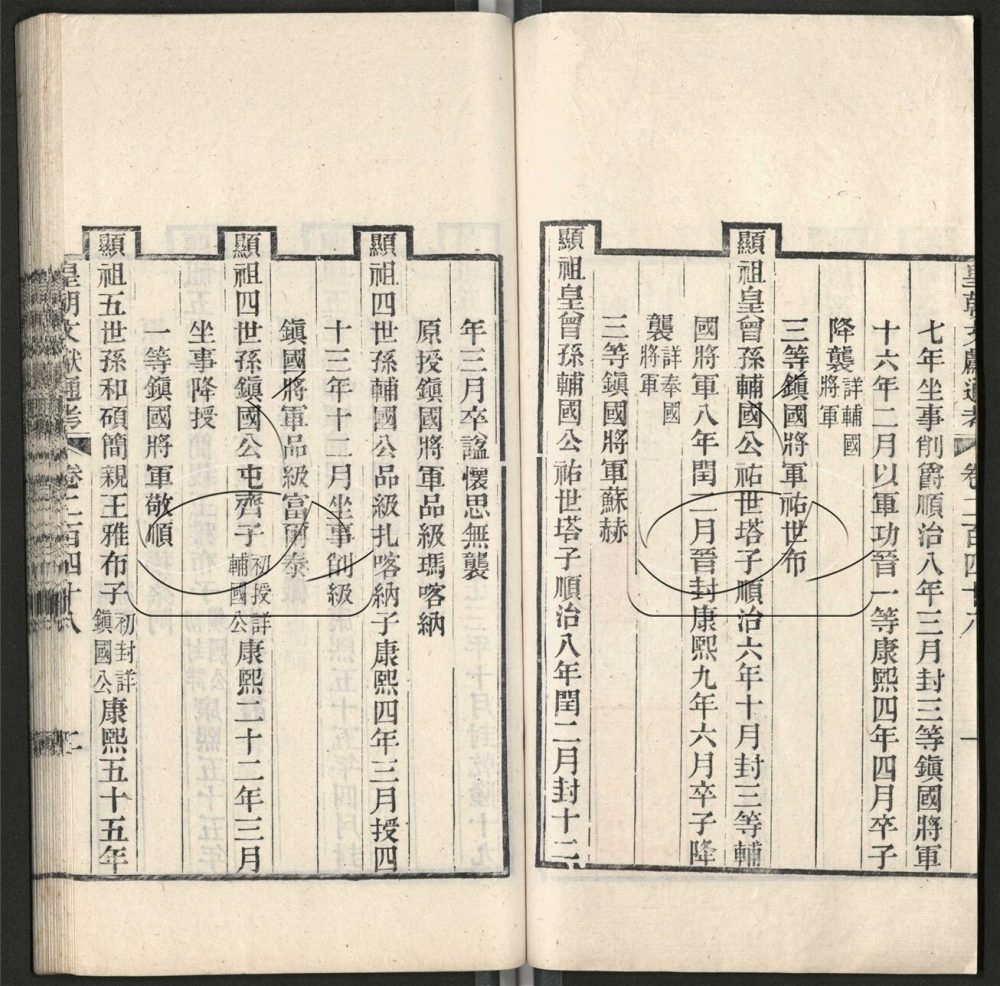 皇朝文獻通考 卷二百四十八 一
七年坐事削爵順治八年三月封三等鎮國將軍
十六年二月以軍功晉一等康熙四年四月卒子
降襲詳輔國將軍
三等鎮國將軍祐世布
顯祖皇曾孫輔國公祐世塔子順治六年十月封三等輔
國將軍八年閏二月晉封康熙九年六月卒子降
襲詳奉國將軍
三等鎮國將軍蘇赫
顯祖皇曾孫輔國公祐世塔子順治八年閏二月封十二
年三月卒諡懷思無襲
原授鎮國將軍品級瑪喀納
顯祖四世孫輔國公品級扎喀納子康熙四年三月授四
十三年十二月坐事削級
鎮國將軍品級富爾泰
顯祖四世孫鎮國公屯齊子初授詳輔國公康熙二十二年三月
坐事降授
一等鎮國將軍敬順
顯祖五世孫和碩簡親王雅布子初封詳鎮國公康熙五十五年
皇朝文獻通考 卷二百四十八 二